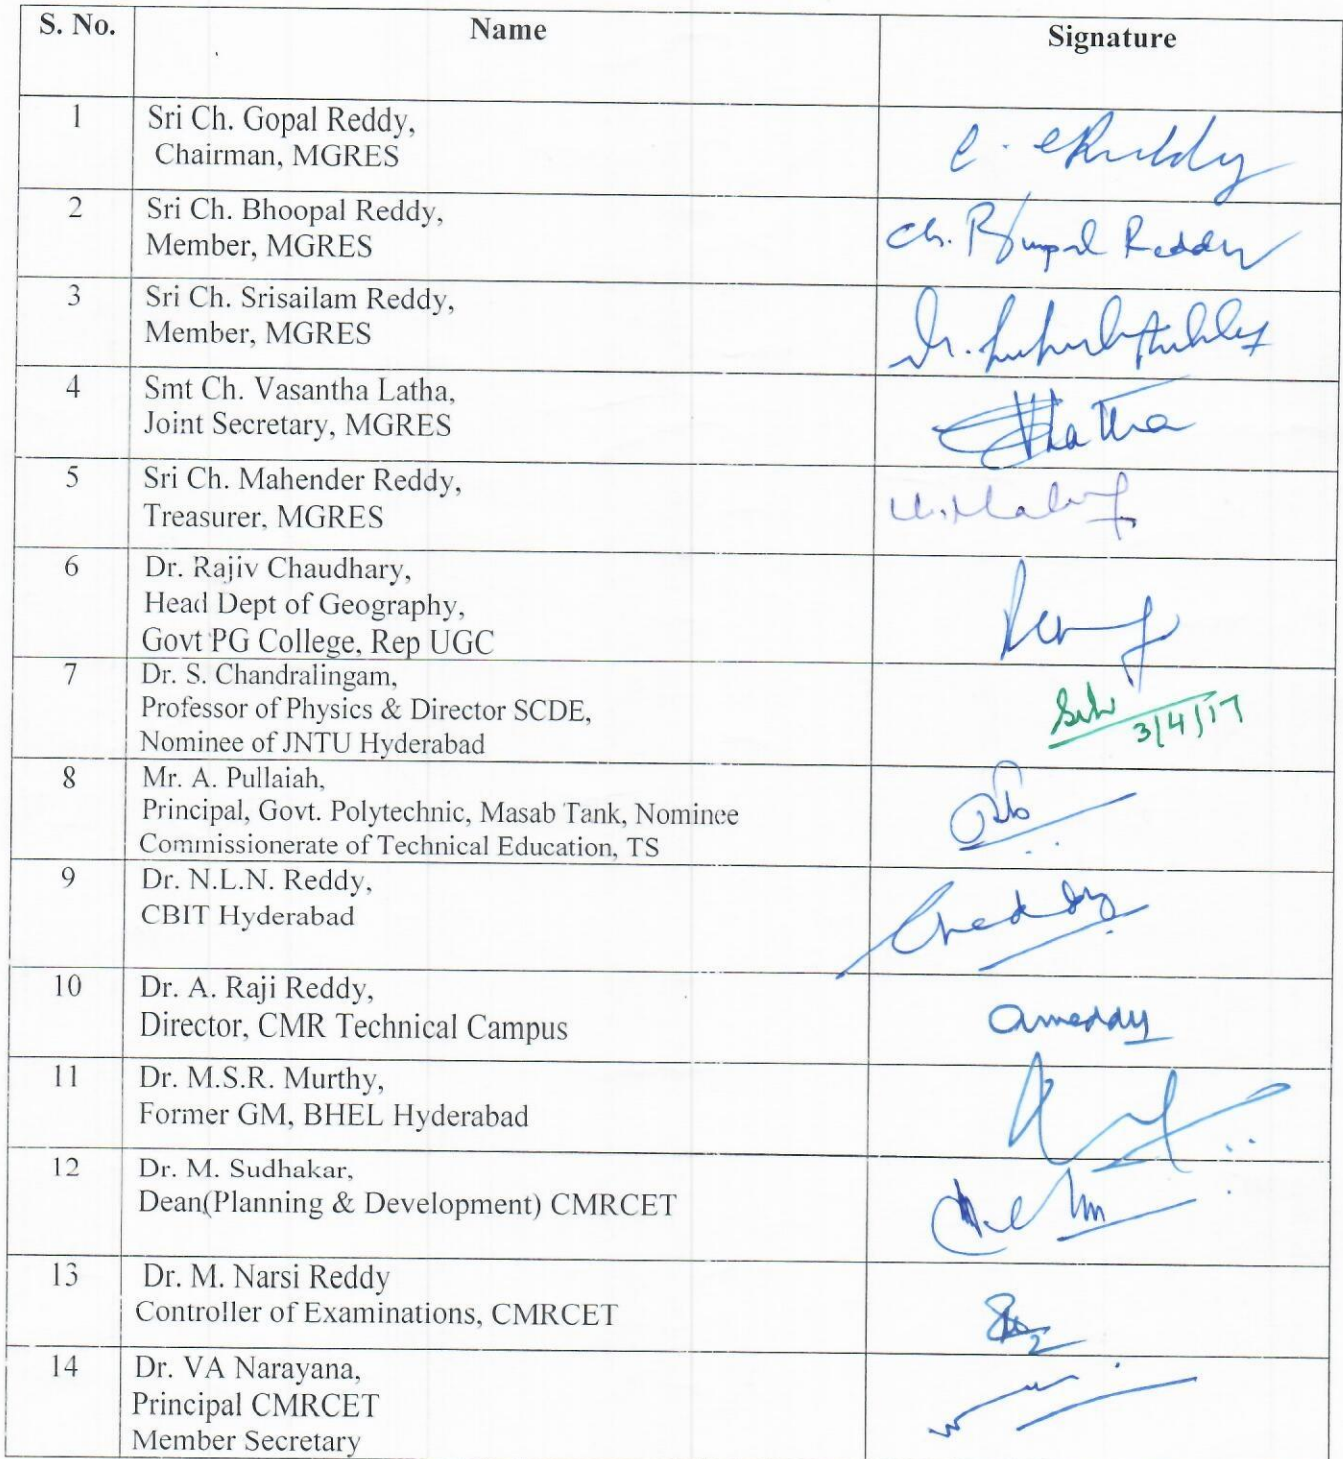 S. No. Name Signature
1 Sri Ch. Gopal Reddy,
Chairman, MGRES
2 Sri Ch. Bhoopal Reddy,
Member, MGRES
Ch. Bhupal Reddy
3 Sri Ch. Srisailam Reddy,
Member, MGRES
4 Smt Ch. Vasantha Latha,
Joint Secretary, MGRES
5 Sri Ch. Mahender Reddy,
Treasurer, MGRES
6 Dr. Rajiv Chaudhary,
Head Dept of Geography,
Govt PG College, Rep UGC
7 Dr. S. Chandralingam,
Professor of Physics & Director SCDE,
3/4/17
Nominee of JNTU Hyderabad
8 Mr. A. Pullaiah,
Principal, Govt. Polytechnic, Masab Tank, Nominee
Commissionerate of Technical Education, TS
9 Dr. N.L.N. Reddy,
CBIT Hyderabad
10 Dr. A. Raji Reddy,
Director, CMR Technical Campus
11 Dr. M.S.R. Murthy,
Former GM, BHEL Hyderabad
12 Dr. M. Sudhakar,
Dean(Planning & Development) CMRCET
13 Dr. M. Narsi Reddy
Controller of Examinations, CMRCET
14 Dr. VA Narayana,
Principal CMRCET
Member Secretary